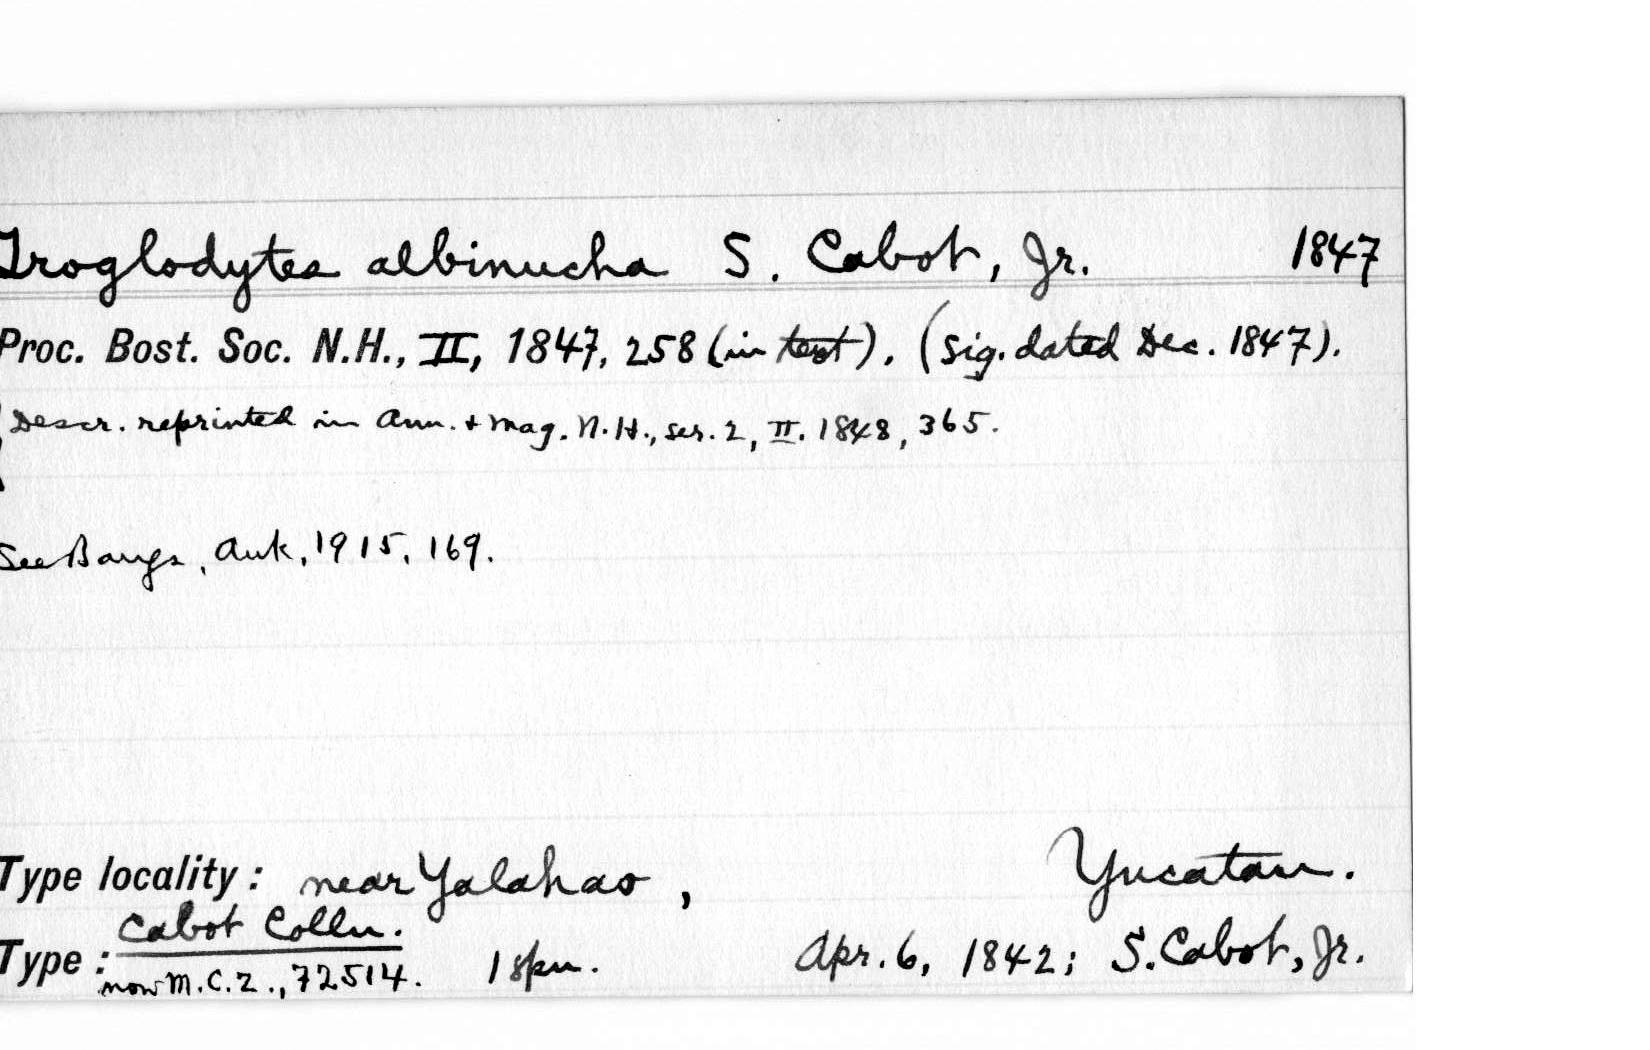 Troglodytes albinucha S. Cabot, Jr. 1847
Proc. Bost. Soc. N.H., II, 1847, 258 (in text). (Sig. dated Dec. 1847).
Descr. reprinted in Ann. + Mag. N.H., ser. 2, II. 1848, 365.
See Bangs, Auk, 1915, 169.
Type locality: near Yalahao, Yucatan.
Cabot Colln.
Type: now M.C.Z., 72514. 1 spn. Apr. 6, 1842; S. Cabot, Jr.